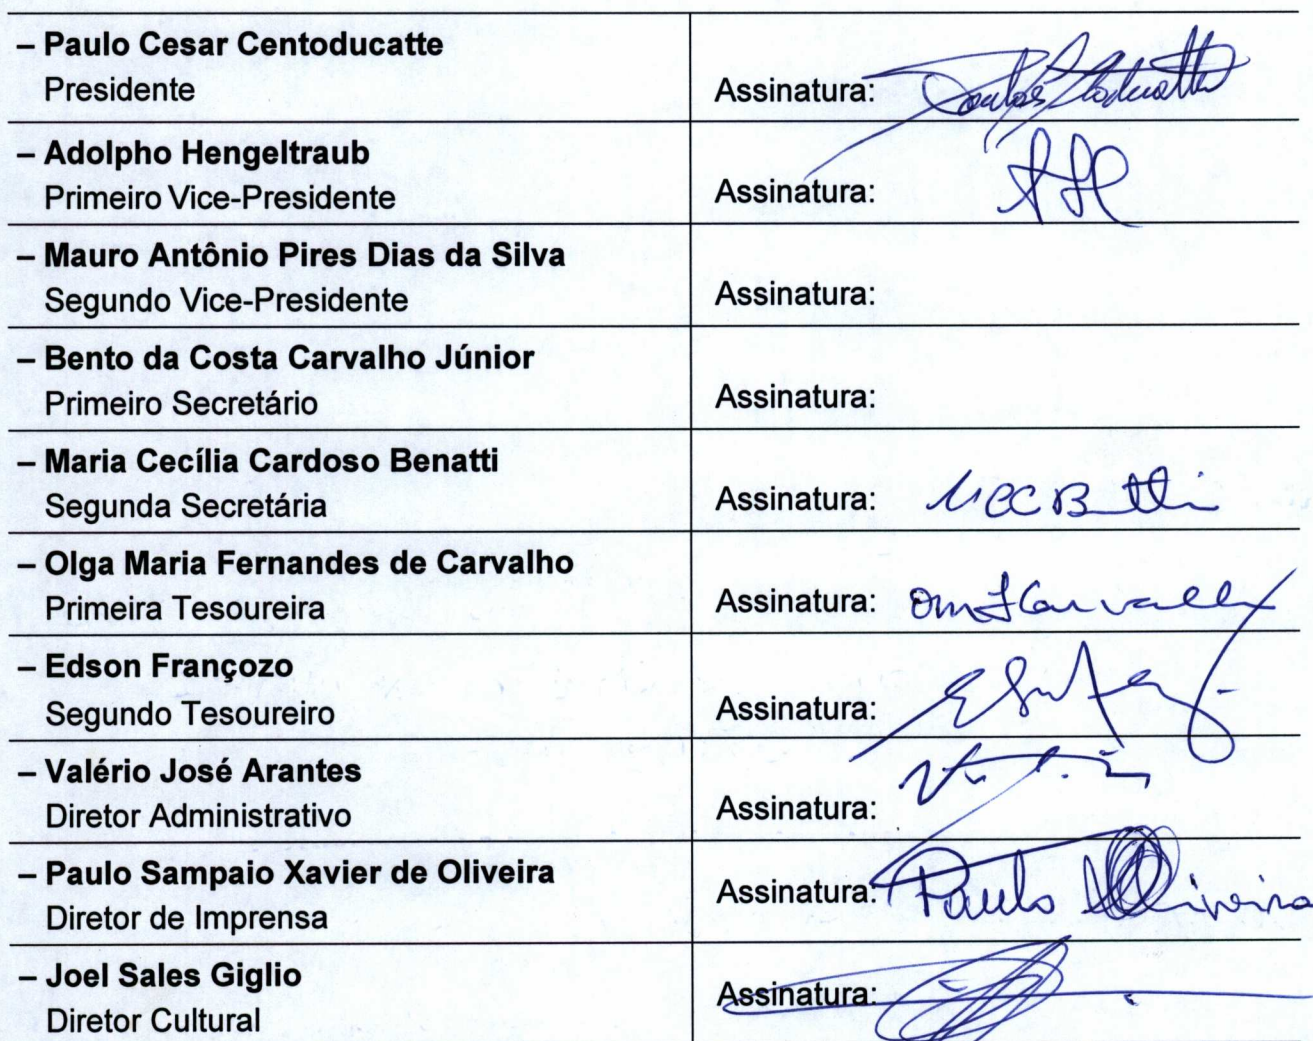 – Paulo Cesar Centoducatte
Presidente
Assinatura:
– Adolpho Hengeltraub
Primeiro Vice-Presidente
Assinatura:
– Mauro Antônio Pires Dias da Silva
Segundo Vice-Presidente
Assinatura:
– Bento da Costa Carvalho Júnior
Primeiro Secretário
Assinatura:
– Maria Cecília Cardoso Benatti
Segunda Secretária
Assinatura:
– Olga Maria Fernandes de Carvalho
Primeira Tesoureira
Assinatura:
– Edson Françozo
Segundo Tesoureiro
Assinatura:
– Valério José Arantes
Diretor Administrativo
Assinatura:
– Paulo Sampaio Xavier de Oliveira
Diretor de Imprensa
Assinatura: Paulo Oliveira
– Joel Sales Giglio
Diretor Cultural
Assinatura: